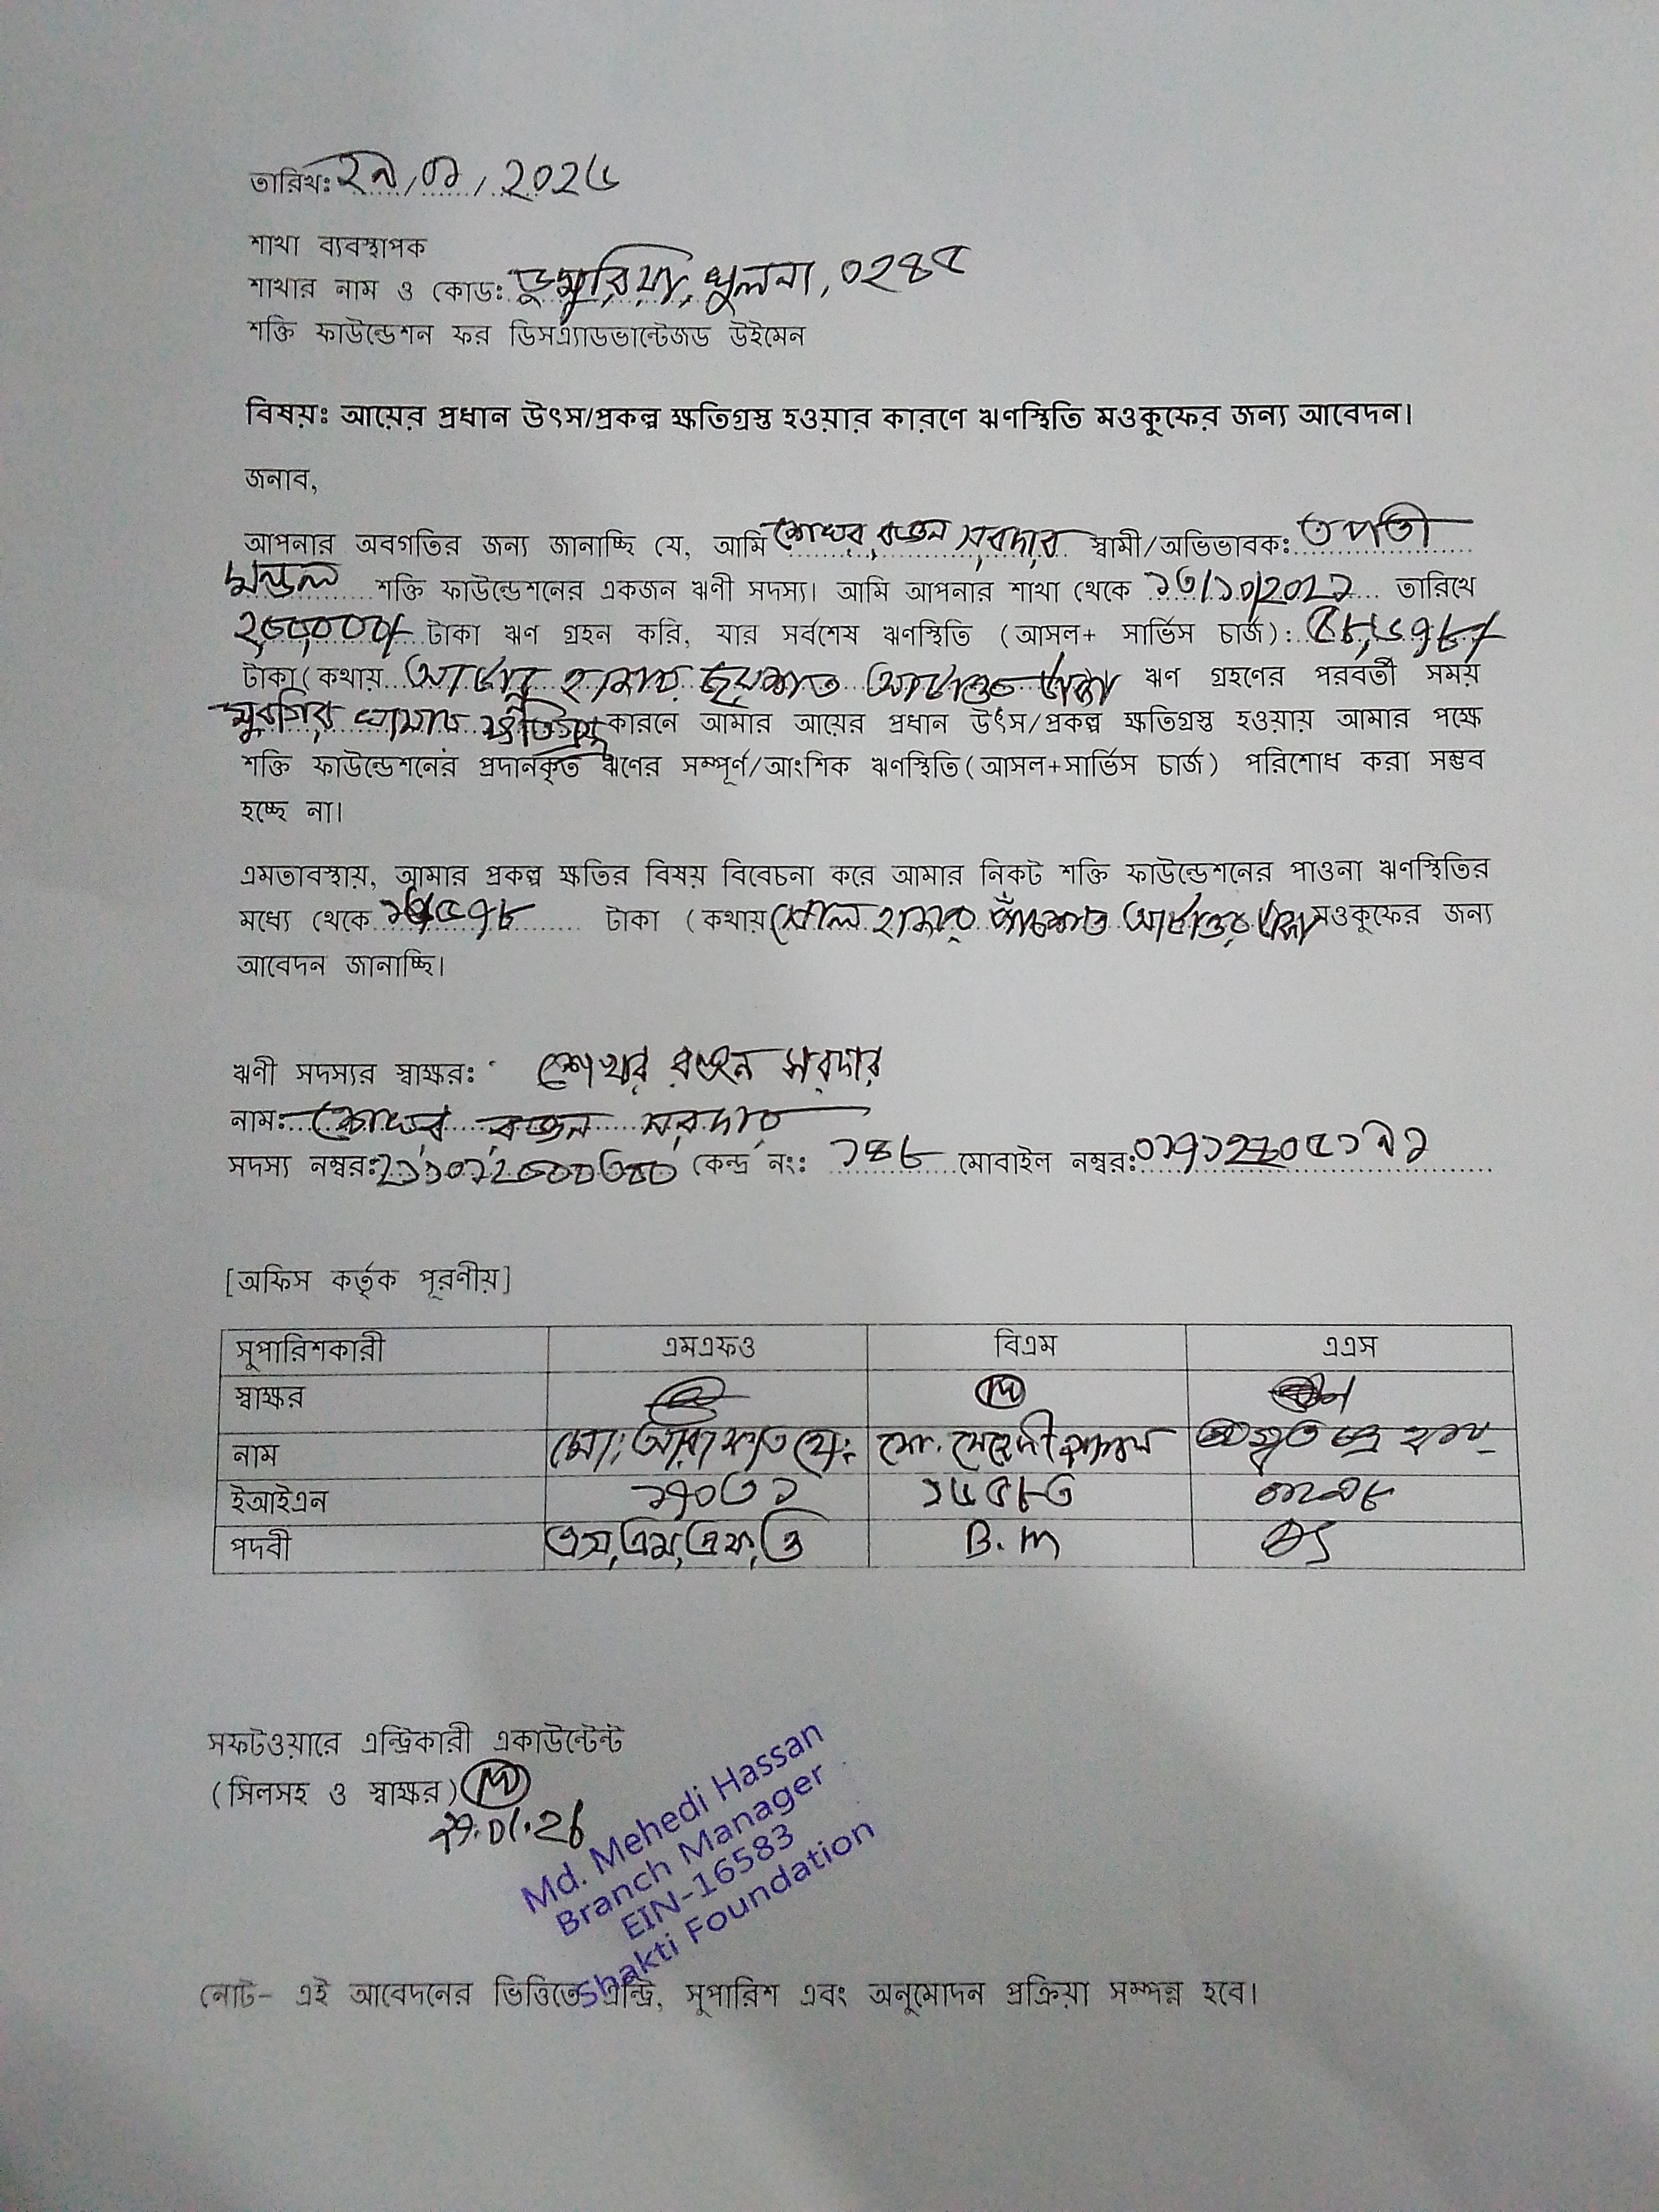 তারিখঃ ২৯/০১/২০২৬
শাখা ব্যবস্থাপক
শাখার নাম ও কোডঃ ডুমুরিয়া, খুলনা, ০২৪৫
শক্তি ফাউন্ডেশন ফর ডিসএ্যাডভান্টেজড উইমেন
বিষয়ঃ আয়ের প্রধান উৎস/প্রকল্প ক্ষতিগ্রস্ত হওয়ার কারণে ঋণস্থিতি মওকুফের জন্য আবেদন।
জনাব,
আপনার অবগতির জন্য জানাচ্ছি যে, আমি শেখর রঞ্জন সরদার স্বামী/অভিভাবক: তপতী
মন্ডল শক্তি ফাউন্ডেশনের একজন ঋণী সদস্য। আমি আপনার শাখা থেকে তারিখে
টাকা ঋণ গ্রহন করি, যার সর্বশেষ ঋণস্থিতি (আসল+ সার্ভিস চার্জ): ৫৮,৬৭৮/-
টাকা(কথায় আটান্ন হাজার ছয়শত আটাত্তর টাকা ঋণ গ্রহণের পরবর্তী সময়
মুরগির খামার ক্ষতিগ্রস্থ কারনে আমার আয়ের প্রধান উৎস/প্রকল্প ক্ষতিগ্রস্ত হওয়ায় আমার পক্ষে
শক্তি ফাউন্ডেশনের প্রদানকৃত ঋণের সম্পূর্ণ/আংশিক ঋণস্থিতি(আসল+সার্ভিস চার্জ) পরিশোধ করা সম্ভব
হচ্ছে না।
এমতাবস্থায়, আমার প্রকল্প ক্ষতির বিষয় বিবেচনা করে আমার নিকট শক্তি ফাউন্ডেশনের পাওনা ঋণস্থিতির
মধ্যে থেকে ১৬৫৭৮ টাকা (কথায় ষোল হাজার পাঁচশত আটাত্তর টাকা মওকুফের জন্য
আবেদন জানাচ্ছি।
ঋণী সদস্যর স্বাক্ষরঃ শেখর রঞ্জন সরদার
নামঃ শেখর রঞ্জন সরদার
সদস্য নম্বরঃ কেন্দ্র নং: ১৪৮ মোবাইল নম্বর:
[অফিস কর্তৃক পূরণীয়]
সুপারিশকারী এমএফও বিএম এএস
স্বাক্ষর
নাম মো: আরাফাত হো: মো. মেহেদী হাসান
ইআইএন ১৭০৩১ ১৬৫৮৩
পদবী এস,এম,এফ,ও B.M
সফটওয়ারে এন্ট্রিকারী একাউন্টেন্ট
(সিলসহ ও স্বাক্ষর)
29.01.26
Md. Mehedi Hassan
Branch Manager
EIN-16583
Shakti Foundation
নোট- এই আবেদনের ভিত্তিতে এন্ট্রি, সুপারিশ এবং অনুমোদন প্রক্রিয়া সম্পন্ন হবে।